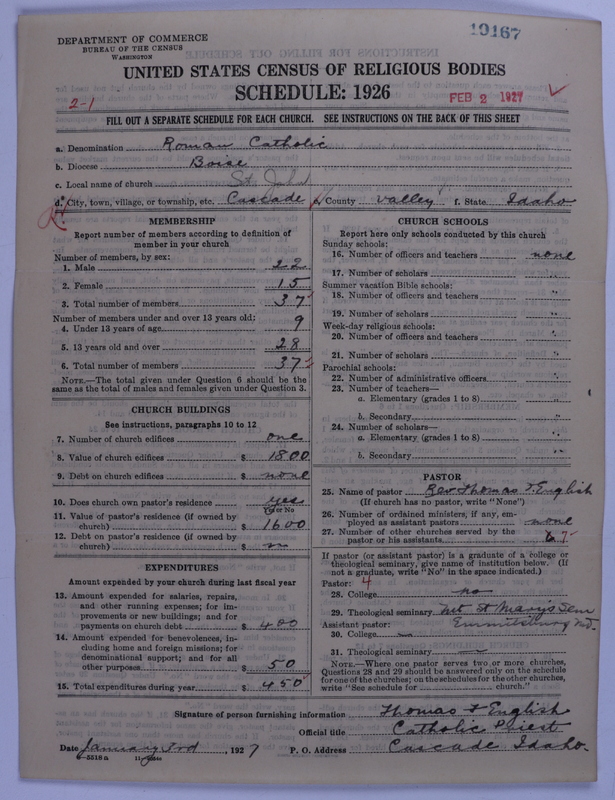 DEPARTMENT OF COMMERCE
BUREAU OF THE CENSUS
WASHINGTON
19167
UNITED STATES CENSUS OF RELIGIOUS BODIES
SCHEDULE: 1926
2-1
FEB 2 1927
FILL OUT A SEPARATE SCHEDULE FOR EACH CHURCH. SEE INSTRUCTIONS ON THE BACK OF THIS SHEET
a. Denomination Roman Catholic
b. Diocese Boise
c. Local name of church St. John
d. City, town, village, or township, etc. Cascade e. County Valley f. State Idaho
MEMBERSHIP
Report number of members according to definition of
member in your church
Number of members, by sex:
1. Male 22
2. Female 15
3. Total number of members 37
Number of members under and over 13 years old:
4. Under 13 years of age 9
5. 13 years old and over 28
6. Total number of members 37
NOTE.—The total given under Question 6 should be the
same as the total of males and females given under Question 3.
CHURCH BUILDINGS
See instructions, paragraphs 10 to 12
7. Number of church edifices one
8. Value of church edifices $ 1800
9. Debt on church edifices $ none
10. Does church own pastor's residence yes
Yes or No
11. Value of pastor's residence (if owned by
church) $ 1600
12. Debt on pastor's residence (if owned by
church) $
EXPENDITURES
Amount expended by your church during last fiscal year
13. Amount expended for salaries, repairs,
and other running expenses; for im-
provements or new buildings; and for
payments on church debt $ 400
14. Amount expended for benevolences, in-
cluding home and foreign missions; for
denominational support; and for all
other purposes $ 50
15. Total expenditures during year $ 450
CHURCH SCHOOLS
Report here only schools conducted by this church
Sunday schools:
16. Number of officers and teachers none
17. Number of scholars "
Summer vacation Bible schools:
18. Number of officers and teachers "
19. Number of scholars "
Week-day religious schools:
20. Number of officers and teachers "
21. Number of scholars "
Parochial schools:
22. Number of administrative officers "
23. Number of teachers—
a. Elementary (grades 1 to 8) "
b. Secondary "
24. Number of scholars—
a. Elementary (grades 1 to 8) "
b. Secondary "
PASTOR
25. Name of pastor Rev Thomas F English
(If church has no pastor, write "None")
26. Number of ordained ministers, if any, em-
ployed as assistant pastors none
27. Number of other churches served by the
pastor or his assistants
If pastor (or assistant pastor) is a graduate of a college or
theological seminary, give name of institution below. (If
not a graduate, write "No" in the space indicated.)
Pastor: 4
28. College no
29. Theological seminary Mt St Mary's Sem
Assistant pastor: Emmitsburg Md.
30. College
31. Theological seminary
NOTE.—Where one pastor serves two or more churches,
Questions 28 and 29 should be answered only on the schedule
for one of the churches; on the schedules for the other churches,
write "See schedule for church."
Signature of person furnishing information Thomas F English
Official title Catholic Priest
Date January 3rd, 1927 P. O. Address Cascade Idaho.